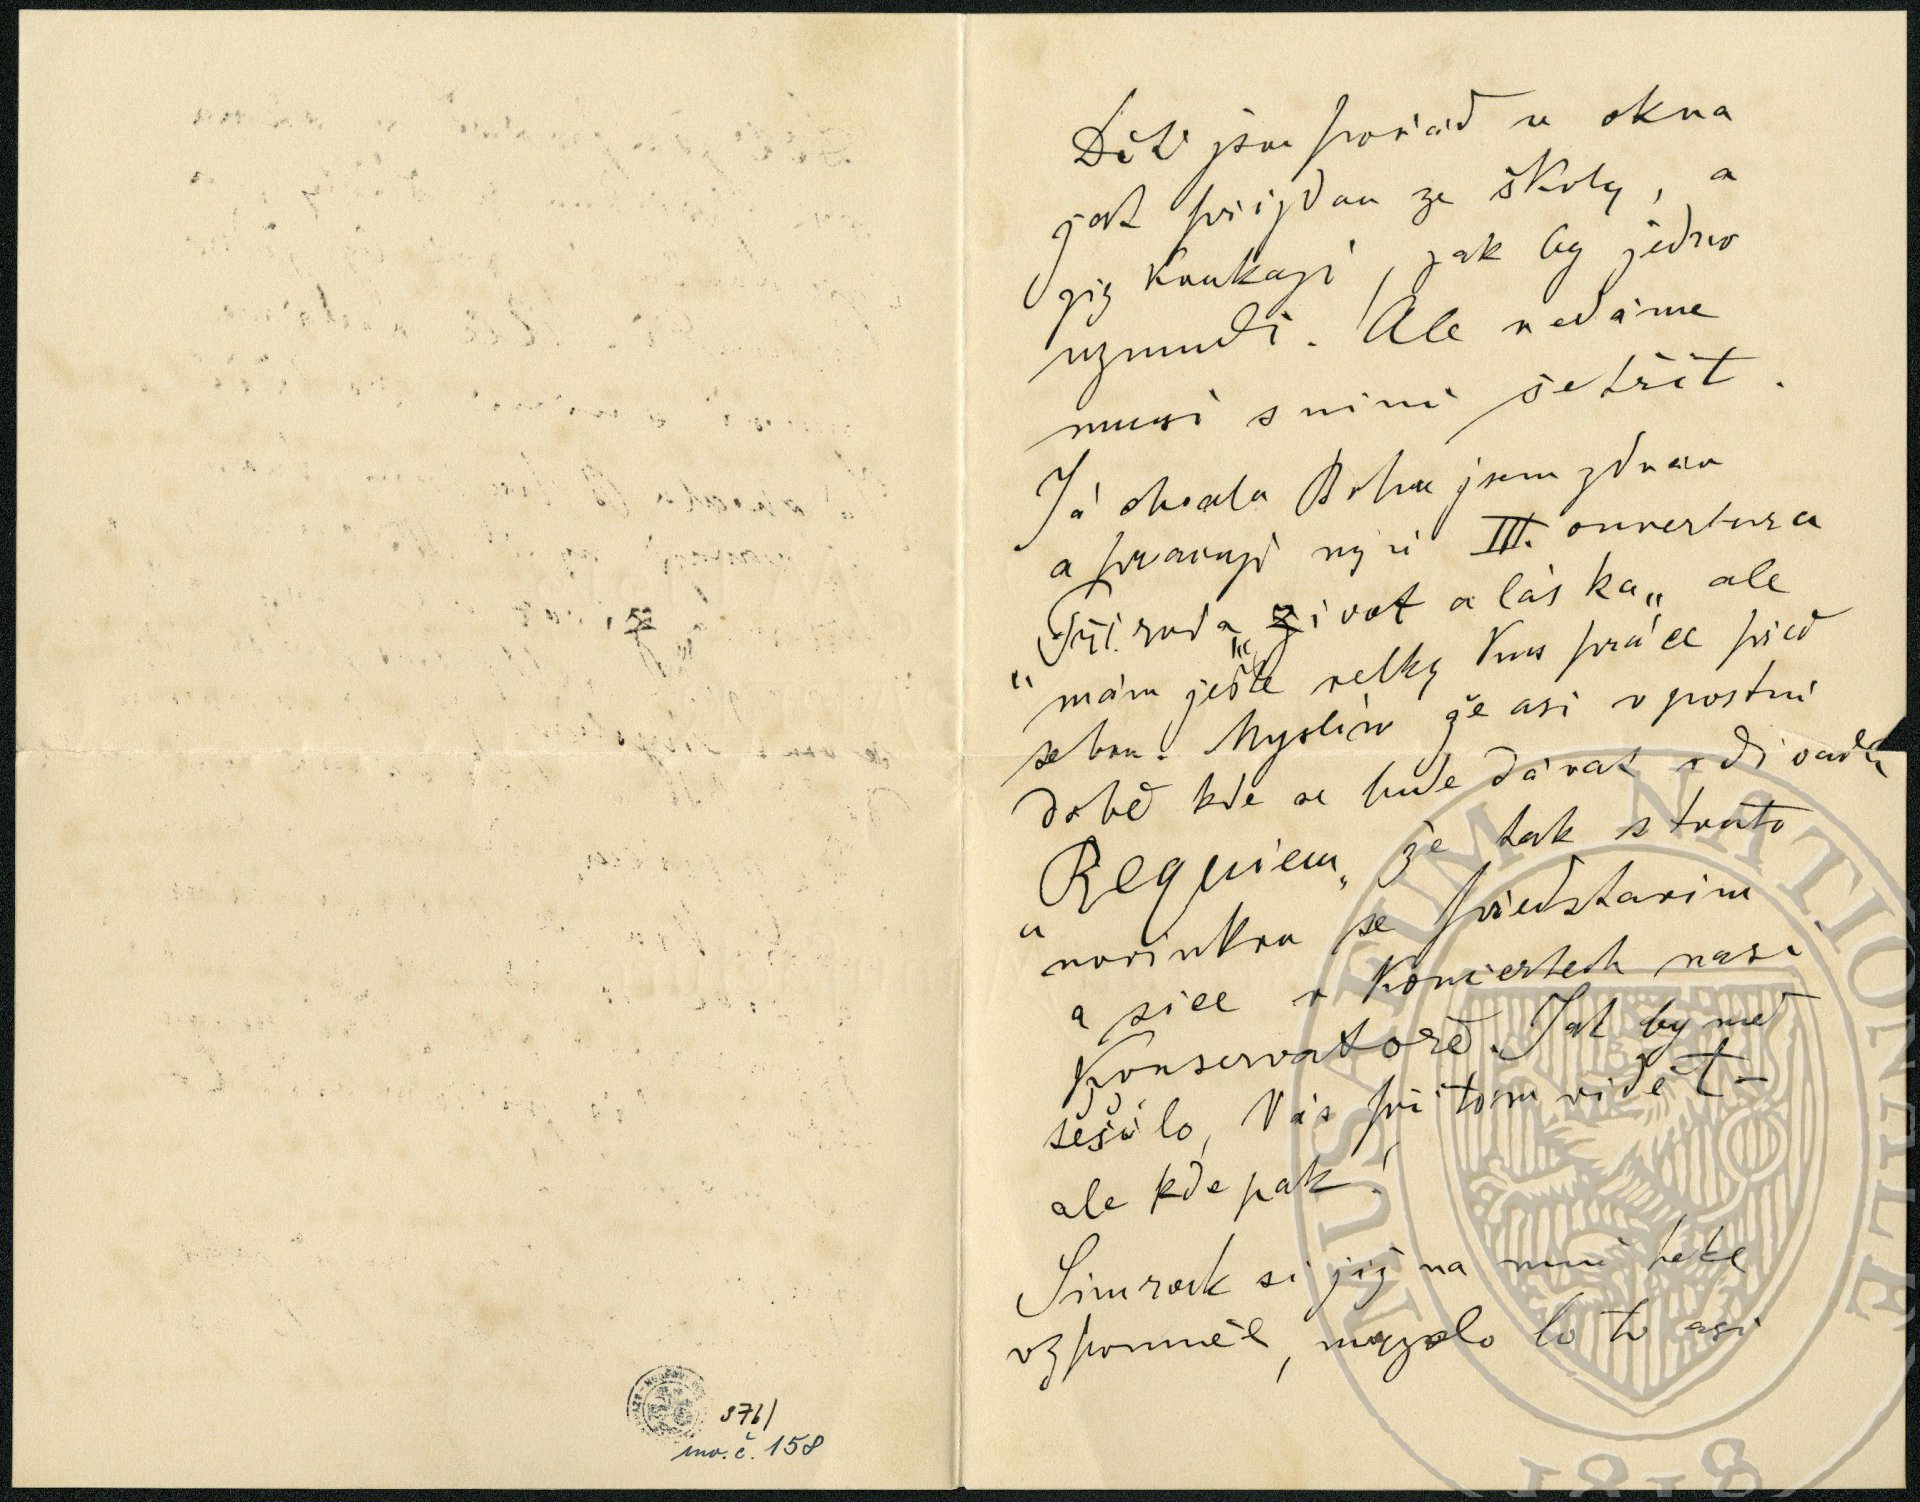 Děti jsou pořád u okna
jak přijdou ze školy, a
již koukají, jak by jedno
uzmuli. Ale nedáme
musí s nimi šetřit.
Já chvala Bohu jsem zdráv
a pracuji nyní III. ouvertura
„Příroda„ „život a láska„ ale
mám ještě velky kus práce před
sebou. Myslím že asi v postní
době kde se bude dávat v divadle
„Requiem„ že tak s touto
novinkou se představím
a sice v koncertech naší
Konservatoře. Jak by mě
těšilo, Vás při tom vidět –
ale kde pak!
Simrock si již na mně také
vzpomněl, mrzelo ho to asi
376/
inv. č. 158
MUSAEUM NATIONALE
1818